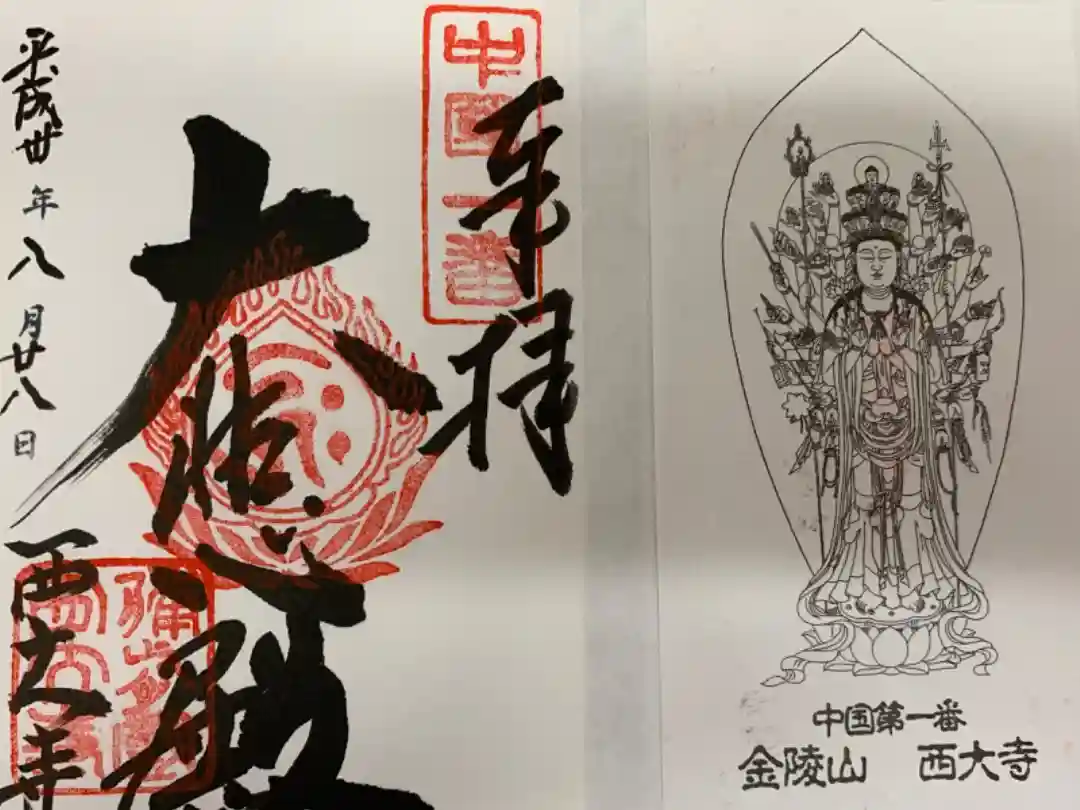 奉拝
中国一番
大悲殿
平成卅年八月廿八日
西大寺
中国第一番
金陵山 西大寺